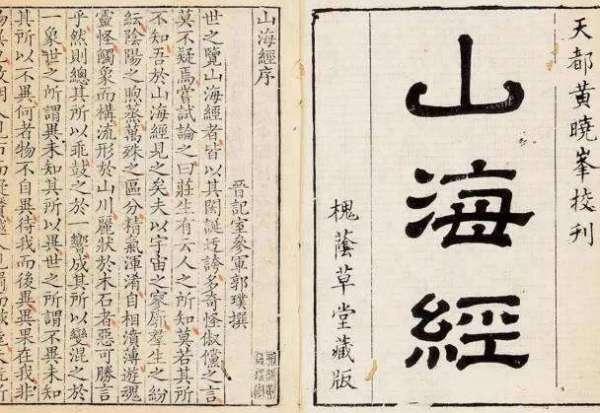 天都黄曉峯校刊
山海經
槐蔭草堂藏版
山海經序
晉記室參軍郭璞撰
世之覽山海經者皆以其閎誕迂誇多奇怪俶儻之言
莫不疑焉嘗試論之曰莊生有云人之所知莫若其所
不知吾於山海經見之矣夫以宇宙之寥廓群生之紛
紜陰陽之煦蒸萬殊之區分精氣渾淆自相濆薄遊魂
靈怪觸象而構流形於山川麗狀於木石者惡可勝言
乎然則總其所以乖鼓之於 響成其所以變混之於
一象世之所謂異未知其所以異世之所謂不異未知
其所以不異何者物不自異待我而後異異果在我非